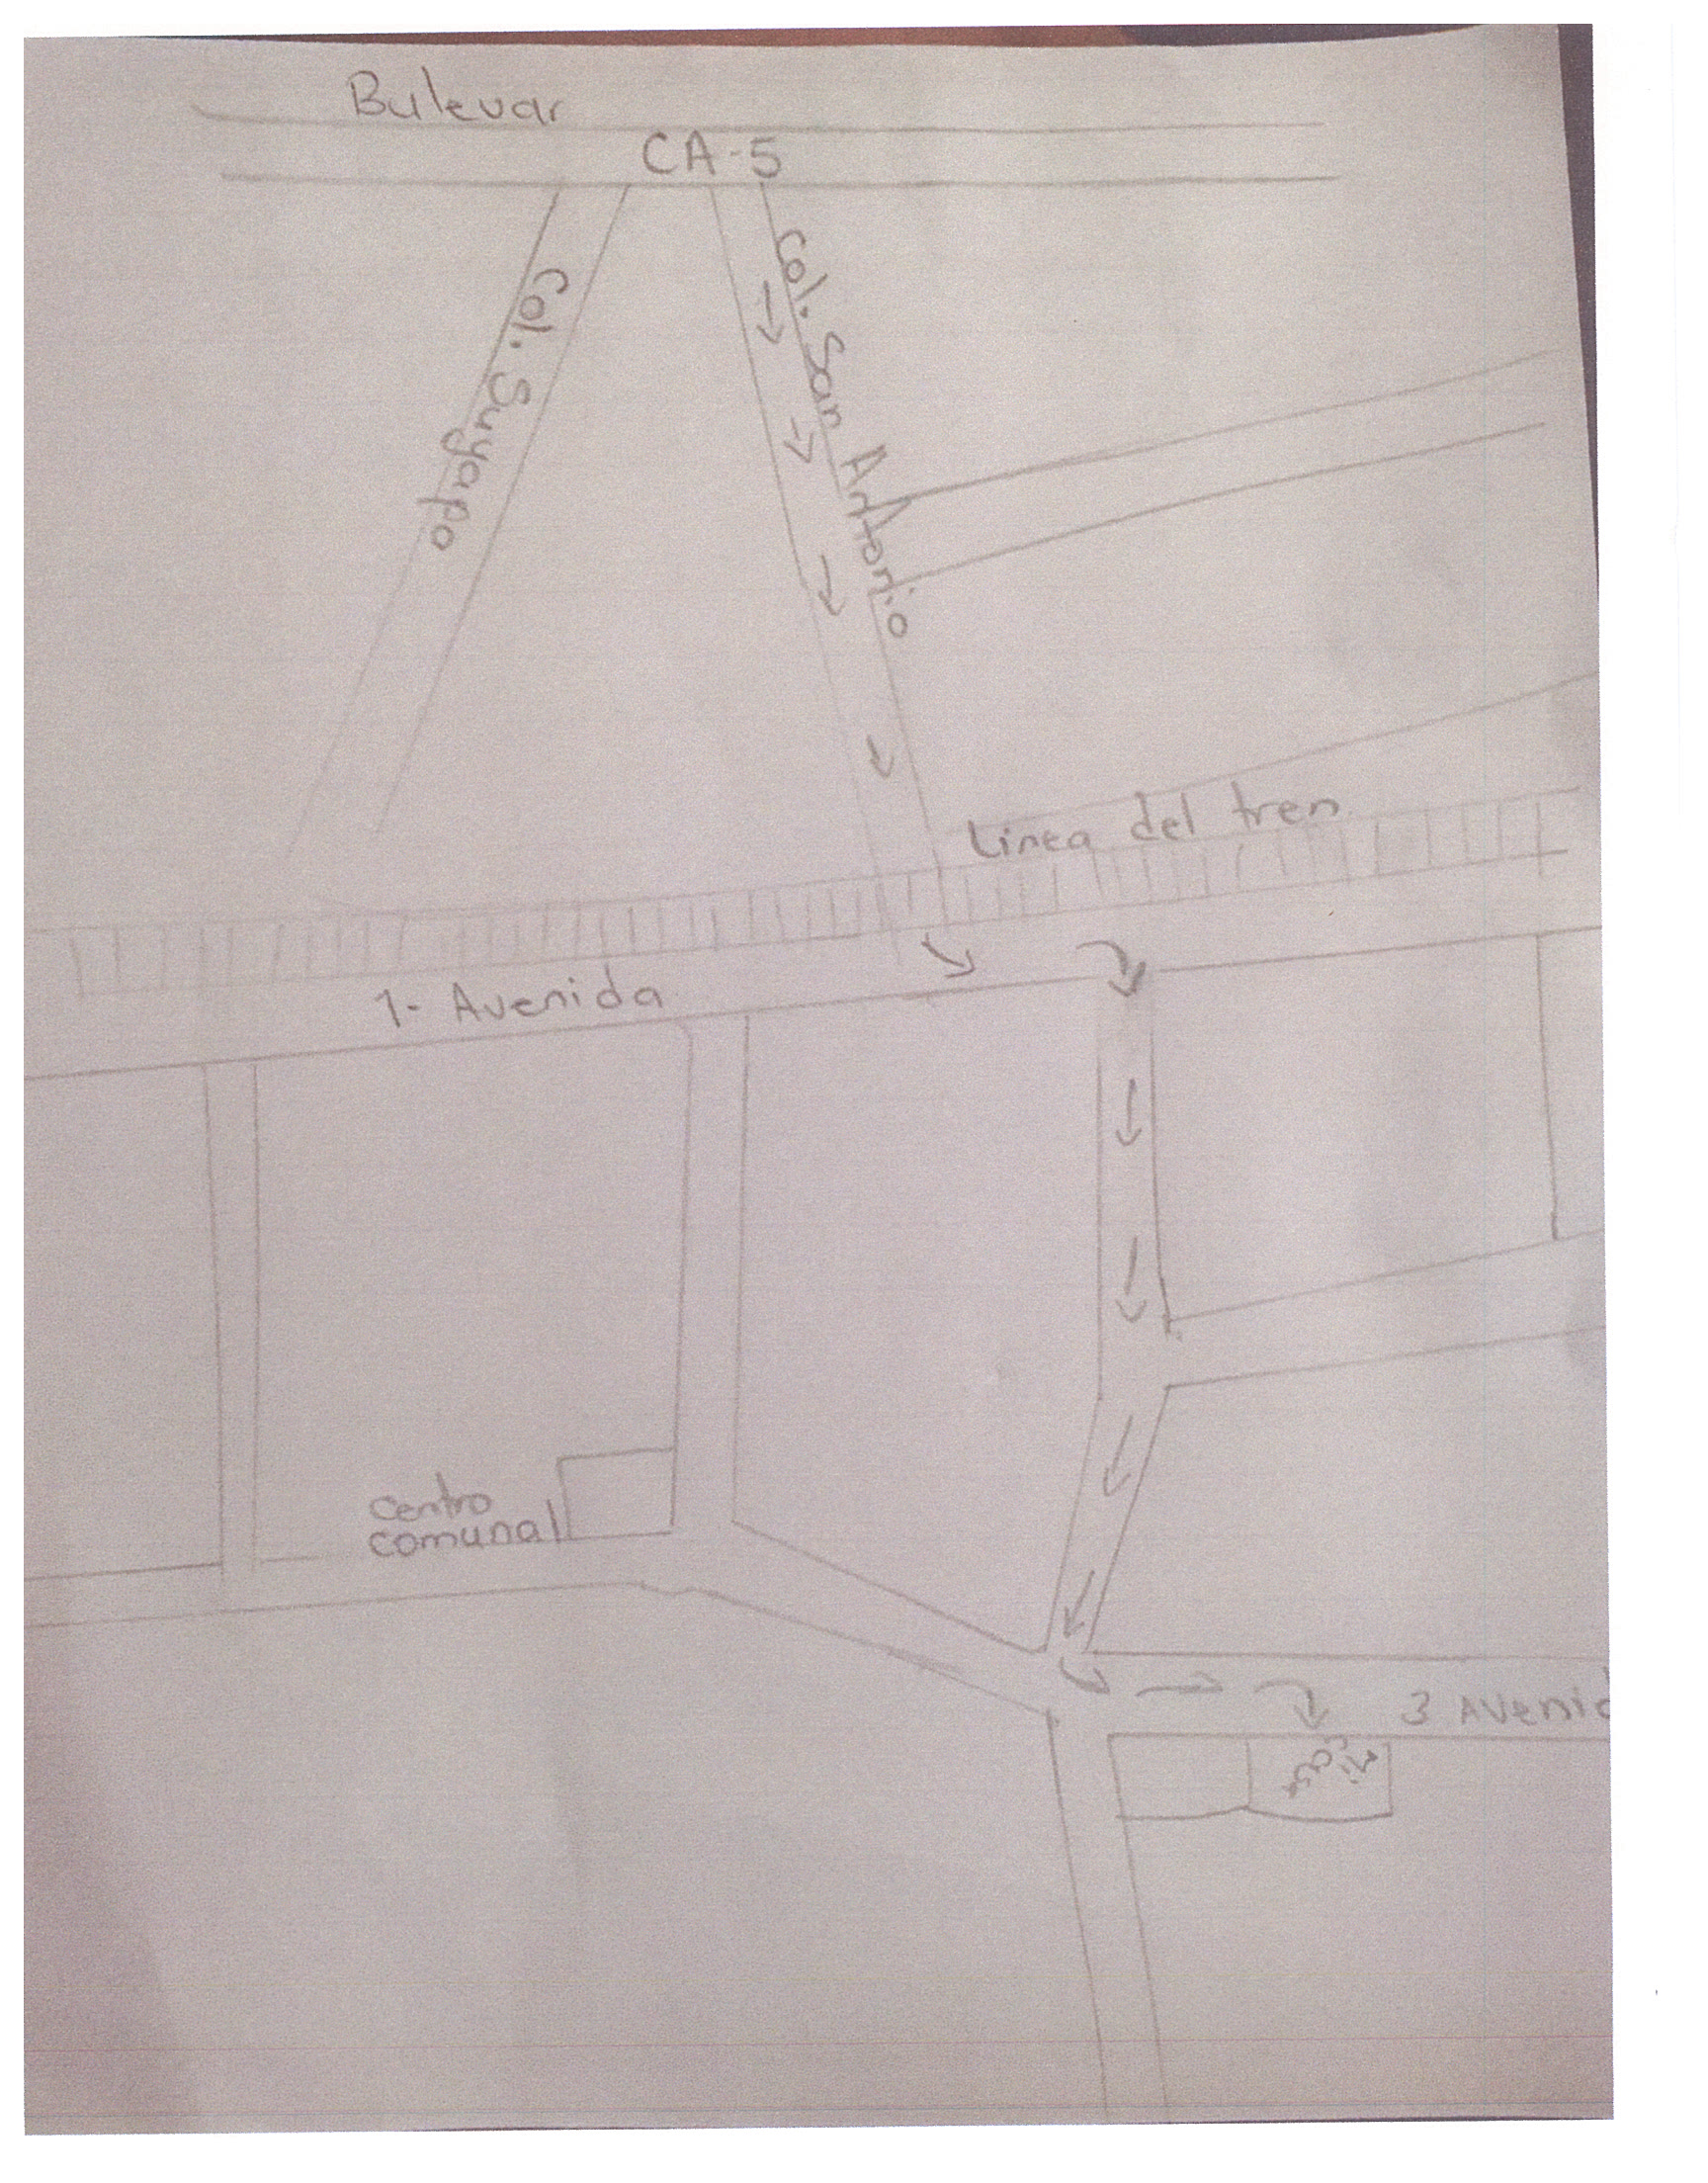 Bulevar
CA-5
Col. Suyapa
Col. San Antonio
Linea del tren
1- Avenida
centro
comunal
3 Avenid
Mi casa